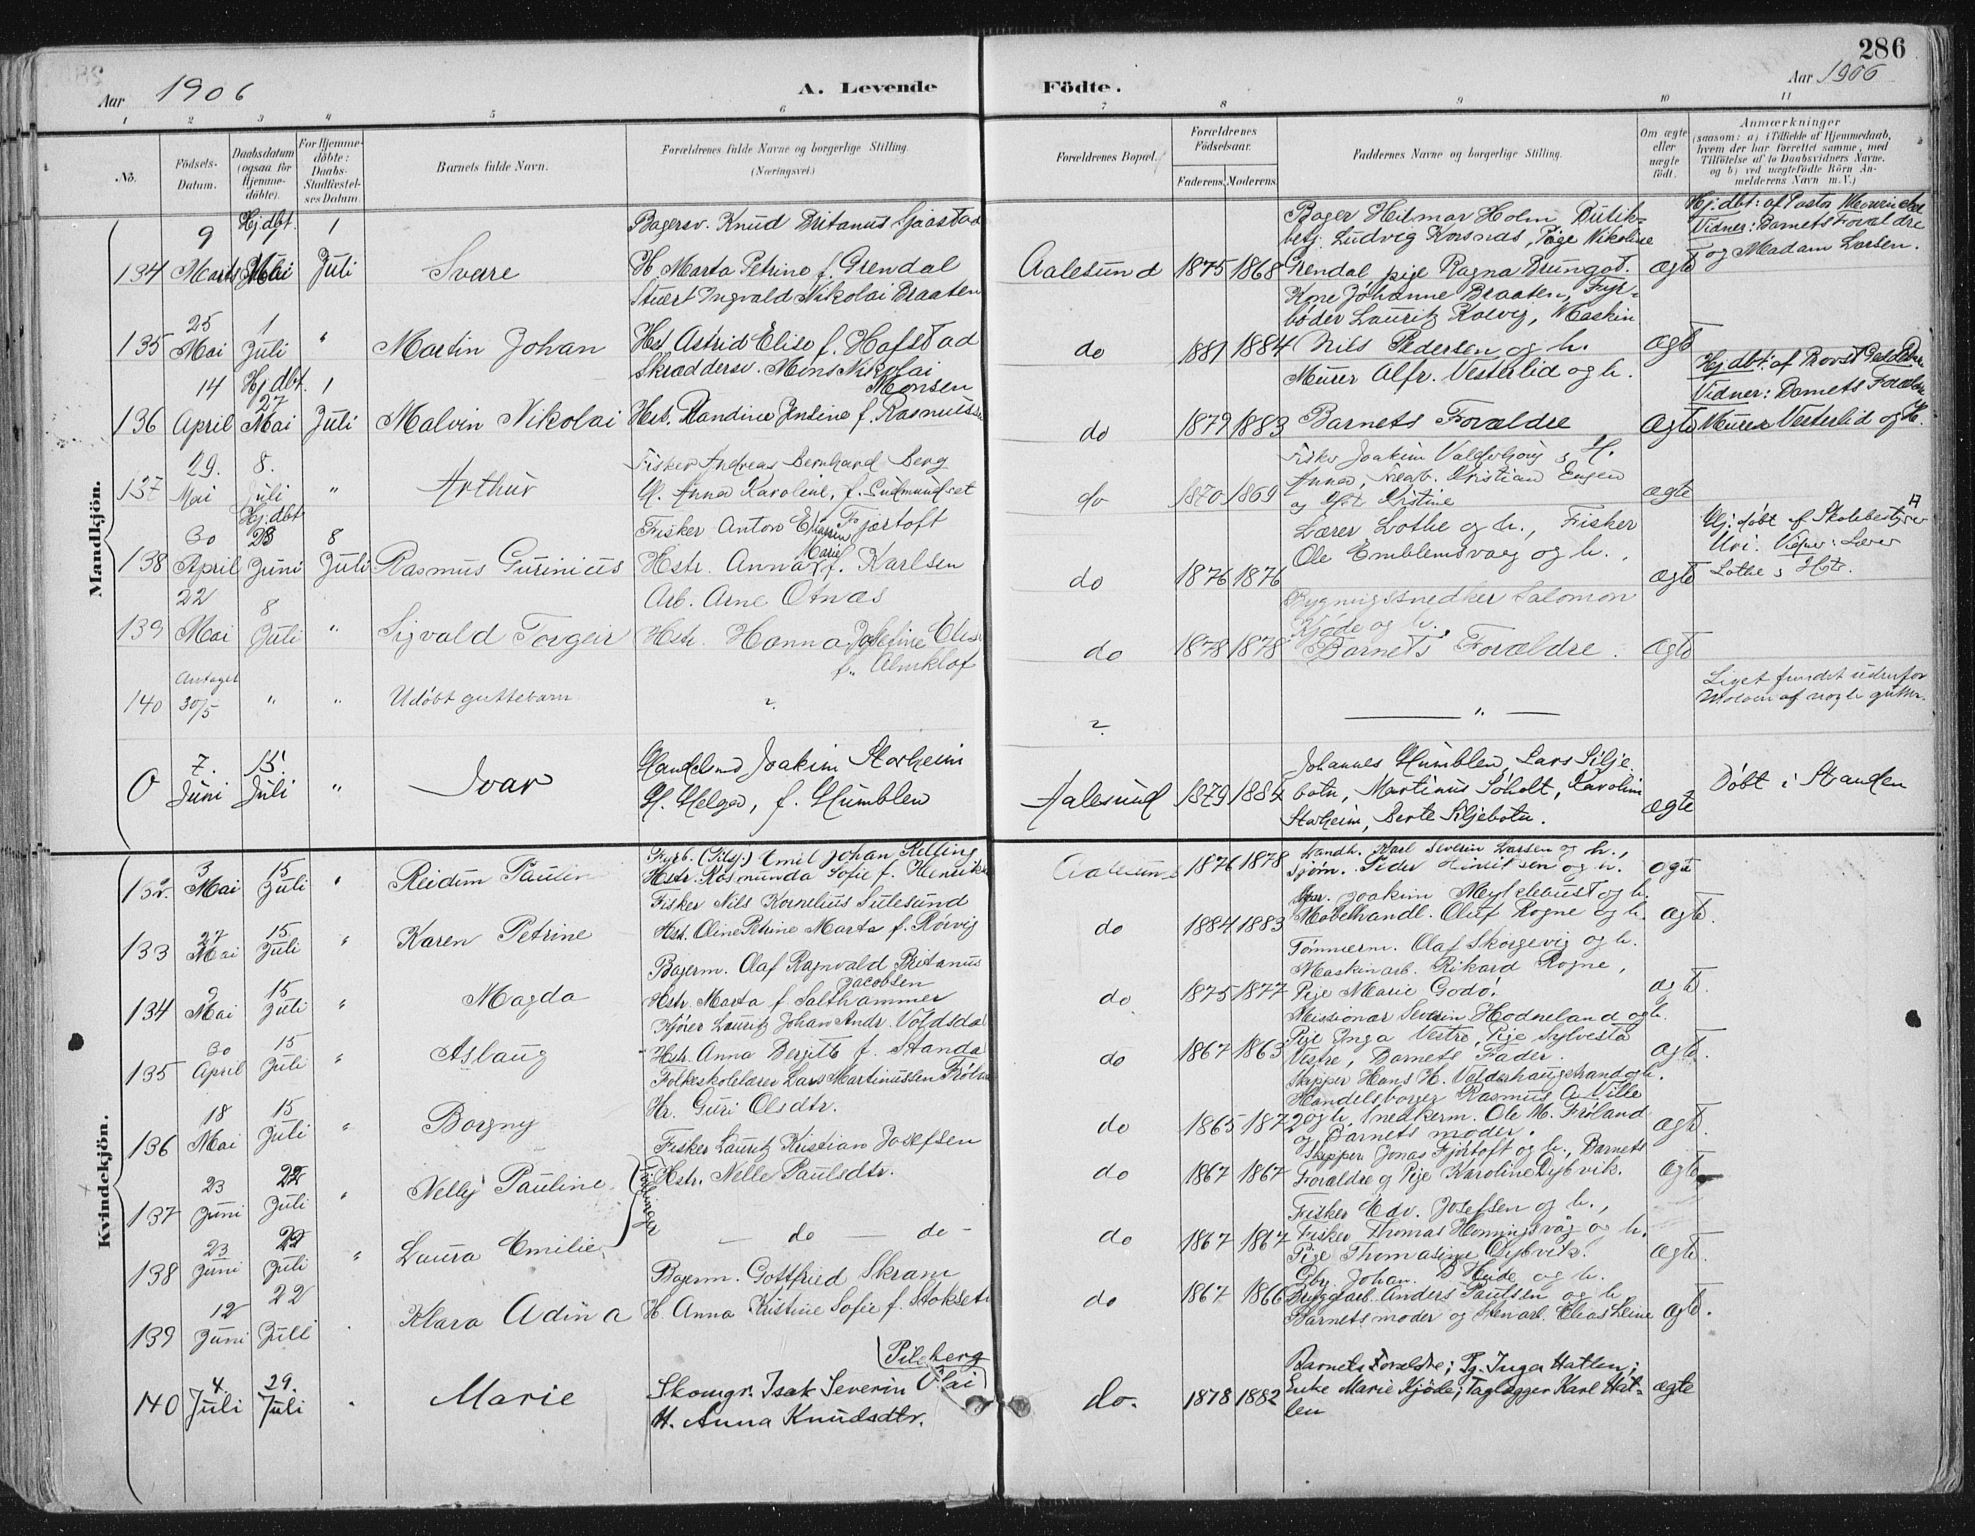 286
Aar 1906
A. Levende Födte.
Aar 1906
1 2 3 4 5 6 7 8 9 10 11
No.
Födsels-Datum.
Daabsdatum (ogsaa för Hjemme-döbte).
For Hjemme-döbte: Daabs-Stadfæstel-ses Datum.
Barnets fulde Navn.
Forældrenes fulde Navne og borgerlige Stilling.
(Næringsvei)
Forældrenes Bopæl.
Forældrenes Födselsaar.
Faderens. Moderens.
Faddernes Navne og borgerlige Stilling.
Om ægte eller uægte födt.
Anmærkninger
(saasom: a) i Tilfælde af Hjemmedaab, hvem der har forrettet samme, med Tilföielse af to Daabsvidners Navne. og b) ved uægtefödte Börn An-melderens Navn m. V.)
Mandkjön.
134 9 Marts Hj.dbt. Mai 1 Juli
Sverre
Bagersv. Knud Britanus Gaastad
H. Marta Petrine f. Grendal
Aalesund 1875 1868
Bager Hilmar Holm, Butik-
betj. Ludvig Korsnæs, Pige Nikoline
Grendal pige Ragna Brungot.
Ægte
Hj.dbt: af Pastor
Vidner: Barnets Forældre
og Madam Larsen.
135 25 Mai 1 Juli "
Martin Johan
Stuert Ingvald Nikolai Braaten
Hst Astrid Elise f. Hofstad
do 1881 1884
Kone Johanne Braaten, Fyr-
böder Lauritz Kalvig, Maskin
Nils Pedersen og h.
Ægte
136 14 April Hj.dbt. 27 Mai 1 Juli
Malvin Nikolai
Skræddersv. Mons Nikolai Monsen
Hst. Randine Jentine f. Rasmussen
do 1879 1883
Murer Alfr. Vesterlid og h.
Barnets Forældre
Ægte
Hj.dbt: af
Vidner: Barnets Forældre
Murer Vesterlid og H.
137 29. Mai 8. Juli "
Arthur
Fisker Andreas Bernhard Berg
H. Anna Karoline, f. Gudmundset
do 1870 1869
Fisker Joakim Valderhoug & H.
Anna, Kristian Eugen
og Kristine
ægte
138 30 April Hj.dbt 23 Juni 8 Juli
Rasmus Gurinius
Fisker Anton Fjørtoft
Hstr. Anna Marie f. Karlsen
do 1876 1876
Lærer Lothe og h., Fisker
Ole Emblemsvaag og h.
Ægte
Hj. döbt af Skolebestyrer
Uri. Vidner: Lærer
Lothe & Hstr.
139 22 Mai 8 Juli "
Sigvald Torgeir
Arb. Arne Otnæs
Hstr. Hanna Josefine Elise
f. Almklof
do 1878 1878
Bygningssnedker Salomon
Kjöde og h.,
Barnets Forældre.
Ægte
140 Antaget 30/5 " "
Udöbt guttebarn
?
?
"
Liget fundet udenfor
Moloen af nogle gutter.
0 7. Juni 15. Juli "
Ivar
Handelsmd Joakim Storheim
H. Helga, f. Humblen
Aalesund 1879 1884
Johannes Humblen, Lars Silje-
botn, Martinus Söholt, Karoline
Storheim, Berte Siljebotn.
Ægte
Döbt i Standen
Kvindekjön.
132. 3 Mai 15 Juli "
Reidun Paulin
Fyrb. Emil Johan Relling
Hstr. Rasmunda Sofie f. Henriks
Aalesund 1876 1878
Handb. Karl Severin Larsen og h.,
Sjöm. Peder Hinriksen og h.
ægte
133 27 Mai 15 Juli "
Karen Petrine
Fisker Nils Kornelius Sulesund
Hst. Oline Petrine Marta f. Rörvig
do 1884 1883
Joakim Myklebust og h.
Möbelhandl. Oluf Rogne og h.
Ægte.
134 9 Mai 15 Juli "
Magda
Bagerm. Olaf Ragnvald Britanus
Jacobsen
Hstr. Marta f. Salthammer
do 1875 1877
Tömmerm. Olaf Skorgevig og h.
Maskinarb. Rikard Rogne,
Pige Marie Godö.
ægte
135 30 April 15 Juli "
Aslaug
Kjörer Lauritz Johan Andr. Voldsdal
Hstr. Anna Bergitte f. Standal
do 1867 1863
Missionær Severin Hodneland og h.
Pige Inga Vestre, Pige Sylvesta
Vestre, Barnets Fader.
ægte
136 18 Mai 15 Juli "
Borgny
Folkeskolelærer Lars Martinussen
Hr. Guri Olsdtr.
do 1865 1872
Skipper Hans H. Valderhaugstrand og h.
Handelsborger Rasmus A. Ville
og h, Snedkerm. Ole M. Fröland
og Barnets moder.
ægte
137 23 Juni 22 Juli "
Nelly Pauline
(Tvillinger
Fisker Lauritz Kristian Josefsen
Hstr. Nelle Paulsdtr.
do 1867 1867
Skipper Jonas Fjörtoft og h., Barnets
Forældre og Pige Karoline Dybvik.
ægte
138 23 Juni 22 Juli "
Laura Emilie
— do — do —
do 1867 1867
Fisker Edv. Josefsen og h.,
Fisker Thomas Honningsvåg og h.
Pige Thomasine Dybvik.
ægte
139 12 Juni 22 Juli "
Klara Adina
Bagerm. Gottfried Skram
H. Anna Kristine Sofie f. Stokseth
do 1867 1866
Gbr. Johan B Heide og h.
Bryggearb. Anders Paulsen og h
Barnets moder og Stenarb. Elias Leine
ægte.
140 4. Juli 29. Juli "
Marie
Skomgr. Isak Severin Olai
H. Anna Knudsdtr.
do. 1878 1882
Barnets Forældre; Pg. Inga Hatlen;
Enke Marie Kjöde; Taglægger Karl Hat-
len
ægte